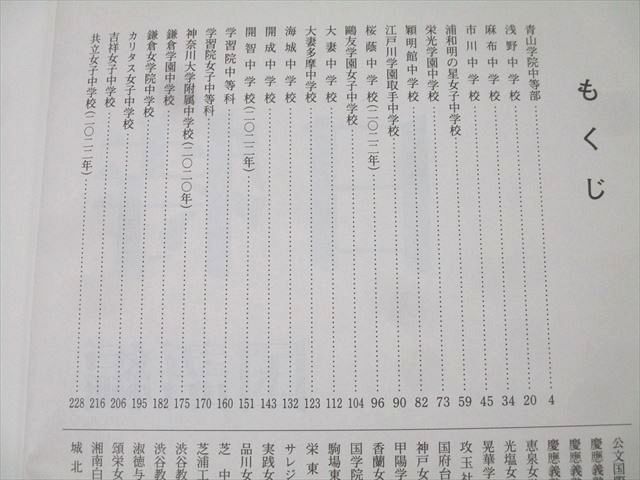 もくじ
青山学院中等部……4
浅野中学校……20
麻布中学校……34
市川中学校……45
浦和明の星女子中学校……59
栄光学園中学校……73
穎明館中学校……82
江戸川学園取手中学校……90
桜蔭中学校(二〇二二年)……96
鷗友学園女子中学校……104
大妻中学校……112
大妻多摩中学校……123
海城中学校……132
開成中学校……143
開智中学校(二〇二二年)……151
学習院中等科……160
学習院女子中等科……170
神奈川大学附属中学校(二〇二〇年)……175
鎌倉学園中学校……182
鎌倉女学院中学校……195
カリタス女子中学校……206
吉祥女子中学校……216
共立女子中学校(二〇二二年)……228
公文国
慶應義
慶應義
慶應義
恵泉女
光塩女
晃華学
攻玉社
国府台
神戸女
甲陽学
香蘭女
国学院
駒場東
栄東
サレジ
実践女
品川女
芝中
芝浦工
渋谷教
渋谷教
淑徳与
頌栄女
湘南白
城北